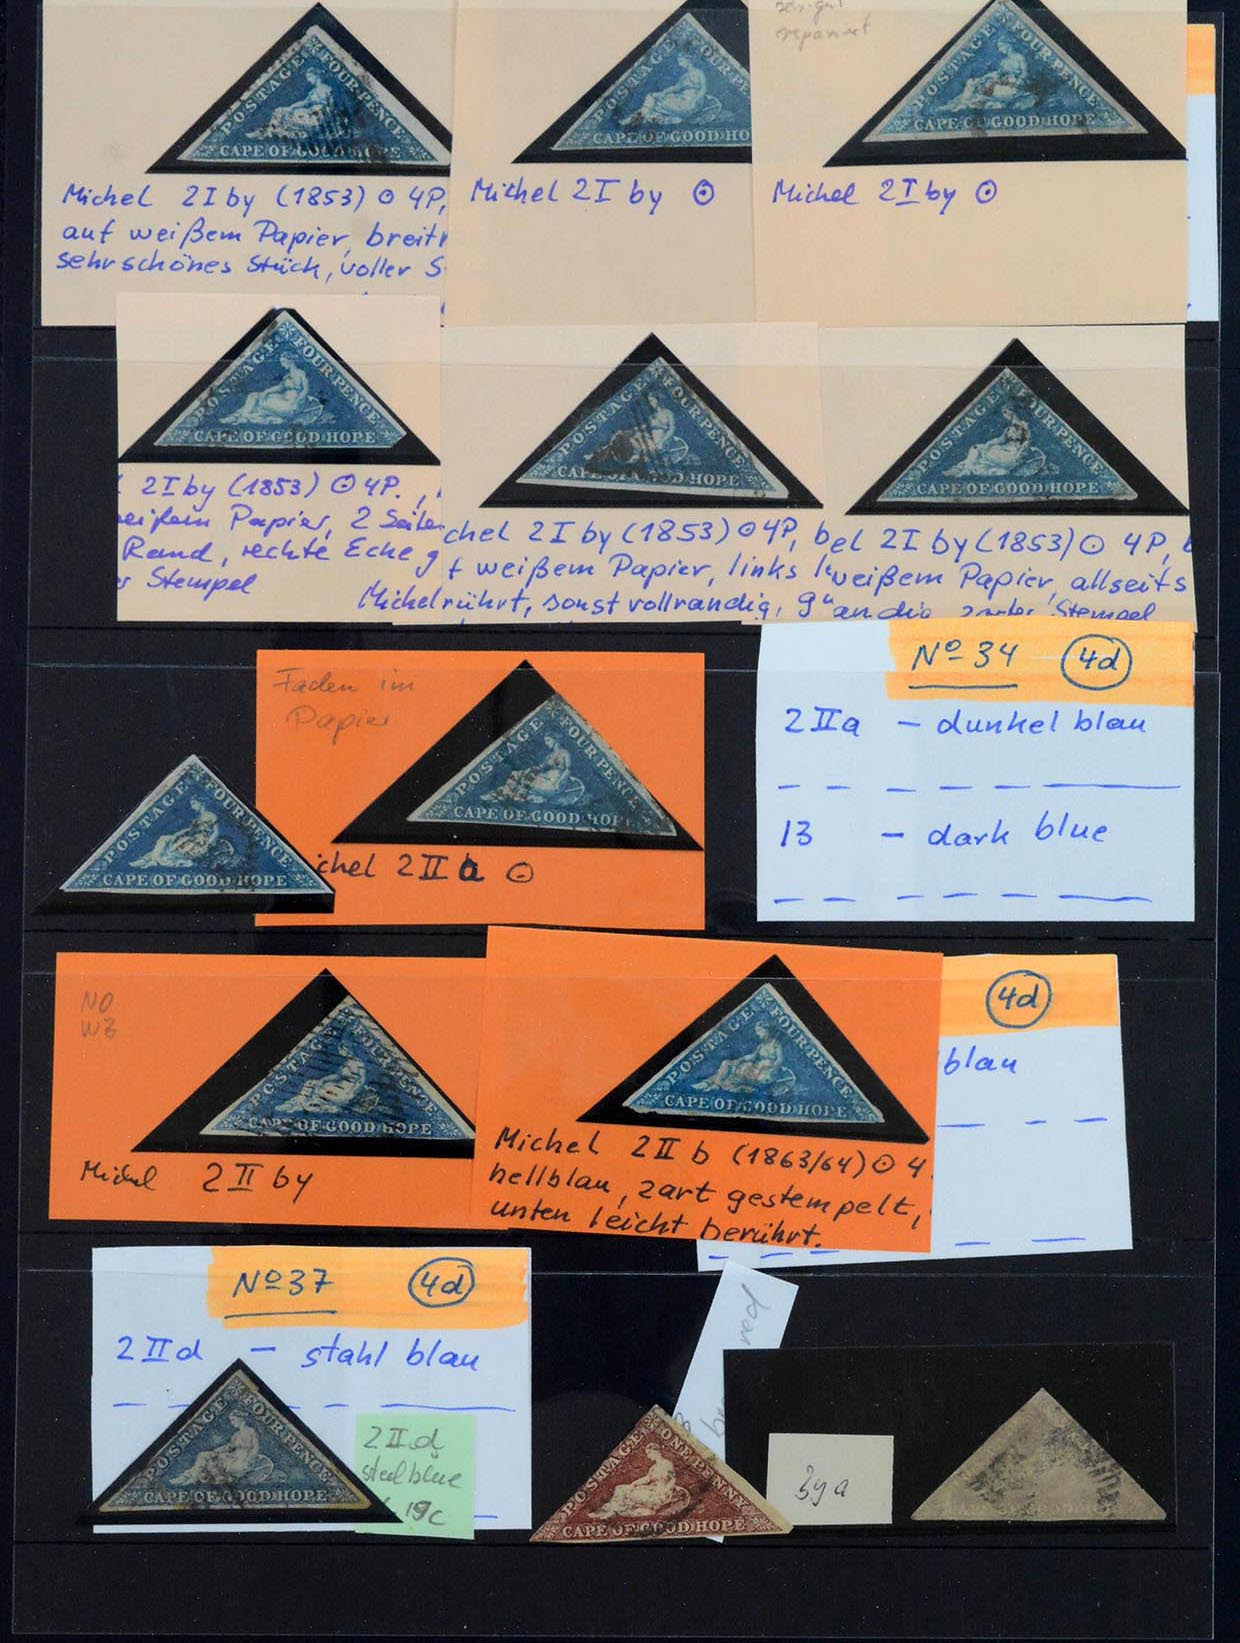 POSTAGE FOUR PENCE
CAPE OF GOOD HOPE
Michel 2I by (1853) ⊙ 4P,
auf weißem Papier, breitr
sehr schönes Stück, voller S
POSTAGE FOUR P
CAPE OF GOOD HO
Michel 2I by ⊙
repariert
POSTAGE FOUR PENCE
CAPE OF GOOD HOPE
Michel 2I by ⊙
POSTAGE FOUR PENCE
CAPE OF GOOD HOPE
2I by (1853) ⊙ 4P.,
Papier, 2 Seiten
Rand, rechte Ecke g
Stempel
POSTAGE FOUR PENCE
CAPE OF GOOD HOPE
chel 2I by (1853) ⊙ 4P,
f weißem Papier, links l
Michel rührt, sonst vollrandig, g
POSTAGE FOUR PENCE
CAPE OF GOOD HOPE
el 2I by (1853) ⊙ 4P, b
weißem Papier, allseits
Stempel
POSTAGE FOUR PENCE
CAPE OF GOOD HOPE
Faden im
Papier
POSTAGE FOUR PENCE
CAPE OF GOOD HOPE
ichel 2II a ⊙
No 34 4d
2IIa – dunkel blau
13 – dark blue
NO
WZ
POSTAGE FOUR PENCE
CAPE OF GOOD HOPE
Michel 2II by
POSTAGE FOUR PENCE
CAPE OF GOOD HOPE
Michel 2II b (1863/64) ⊙ 4
hellblau, zart gestempelt,
unten leicht berührt.
4d
blau
No 37 4d
2IId – stahl blau
POSTAGE FOUR PENCE
CAPE OF GOOD HOPE
2II d
steel blue
19c
POSTAGE ONE PENNY
CAPE OF GOOD HOPE
3ya